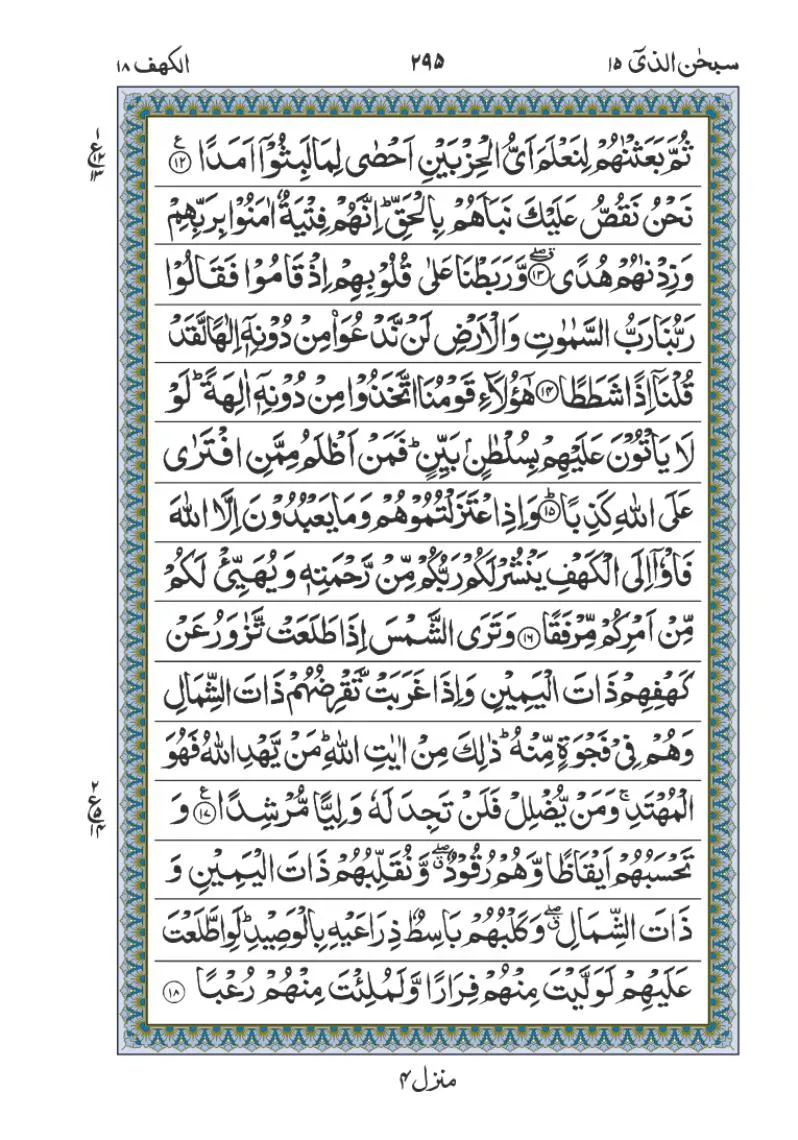 سبحٰن الذیٓ ١٥
٢٩٥
الكهف ١٨
ثُمَّ بَعَثْنٰهُمْ لِنَعْلَمَ اَىُّ الْحِزْبَيْنِ اَحْصٰى لِمَا لَبِثُوْۤا اَمَدًا ࣖ ۝١٢
١
ع
١٢
١٣
نَحْنُ نَقُصُّ عَلَيْكَ نَبَاَهُمْ بِالْحَقِّ ؕ اِنَّهُمْ فِتْيَةٌ اٰمَنُوْا بِرَبِّهِمْ
وَزِدْنٰهُمْ هُدًى ۝١٣ ۖق وَّرَبَطْنَا عَلٰى قُلُوْبِهِمْ اِذْ قَامُوْا فَقَالُوْا
رَبُّنَا رَبُّ السَّمٰوٰتِ وَالْاَرْضِ لَنْ نَّدْعُوَا۟ مِنْ دُوْنِهٖۤ اِلٰهًا لَّقَدْ
قُلْنَاۤ اِذًا شَطَطًا ۝١٤ هٰۤؤُلَاۤءِ قَوْمُنَا اتَّخَذُوْا مِنْ دُوْنِهٖۤ اٰلِهَةً ؕ لَوْ
لَا يَاْتُوْنَ عَلَيْهِمْ بِسُلْطٰنٍۭ بَيِّنٍ ؕ فَمَنْ اَظْلَمُ مِمَّنِ افْتَرٰى
عَلَى اللّٰهِ كَذِبًا ؕ ۝١٥ وَاِذِ اعْتَزَلْتُمُوْهُمْ وَمَا يَعْبُدُوْنَ اِلَّا اللّٰهَ
فَاْوٗۤا اِلَى الْكَهْفِ يَنْشُرْ لَكُمْ رَبُّكُمْ مِّنْ رَّحْمَتِهٖ وَيُهَيِّئْ لَكُمْ
مِّنْ اَمْرِكُمْ مِّرْفَقًا ۝١٦ وَتَرَى الشَّمْسَ اِذَا طَلَعَتْ تَّزٰوَرُ عَنْ
كَهْفِهِمْ ذَاتَ الْيَمِيْنِ وَاِذَا غَرَبَتْ تَّقْرِضُهُمْ ذَاتَ الشِّمَالِ
وَهُمْ فِىْ فَجْوَةٍ مِّنْهُ ؕ ذٰلِكَ مِنْ اٰيٰتِ اللّٰهِ ؕ مَنْ يَّهْدِ اللّٰهُ فَهُوَ
الْمُهْتَدِ ۚ وَمَنْ يُّضْلِلْ فَلَنْ تَجِدَ لَهٗ وَلِيًّا مُّرْشِدًا ࣖ ۝١٧ وَ
٢
ع
٥
١٤
تَحْسَبُهُمْ اَيْقَاظًا وَّهُمْ رُقُوْدٌ ۖق وَّنُقَلِّبُهُمْ ذَاتَ الْيَمِيْنِ وَ
ذَاتَ الشِّمَالِ ۖق وَكَلْبُهُمْ بَاسِطٌ ذِرَاعَيْهِ بِالْوَصِيْدِ ؕ لَوِ اطَّلَعْتَ
عَلَيْهِمْ لَوَلَّيْتَ مِنْهُمْ فِرَارًا وَّلَمُلِئْتَ مِنْهُمْ رُعْبًا ۝١٨
منزل ٤